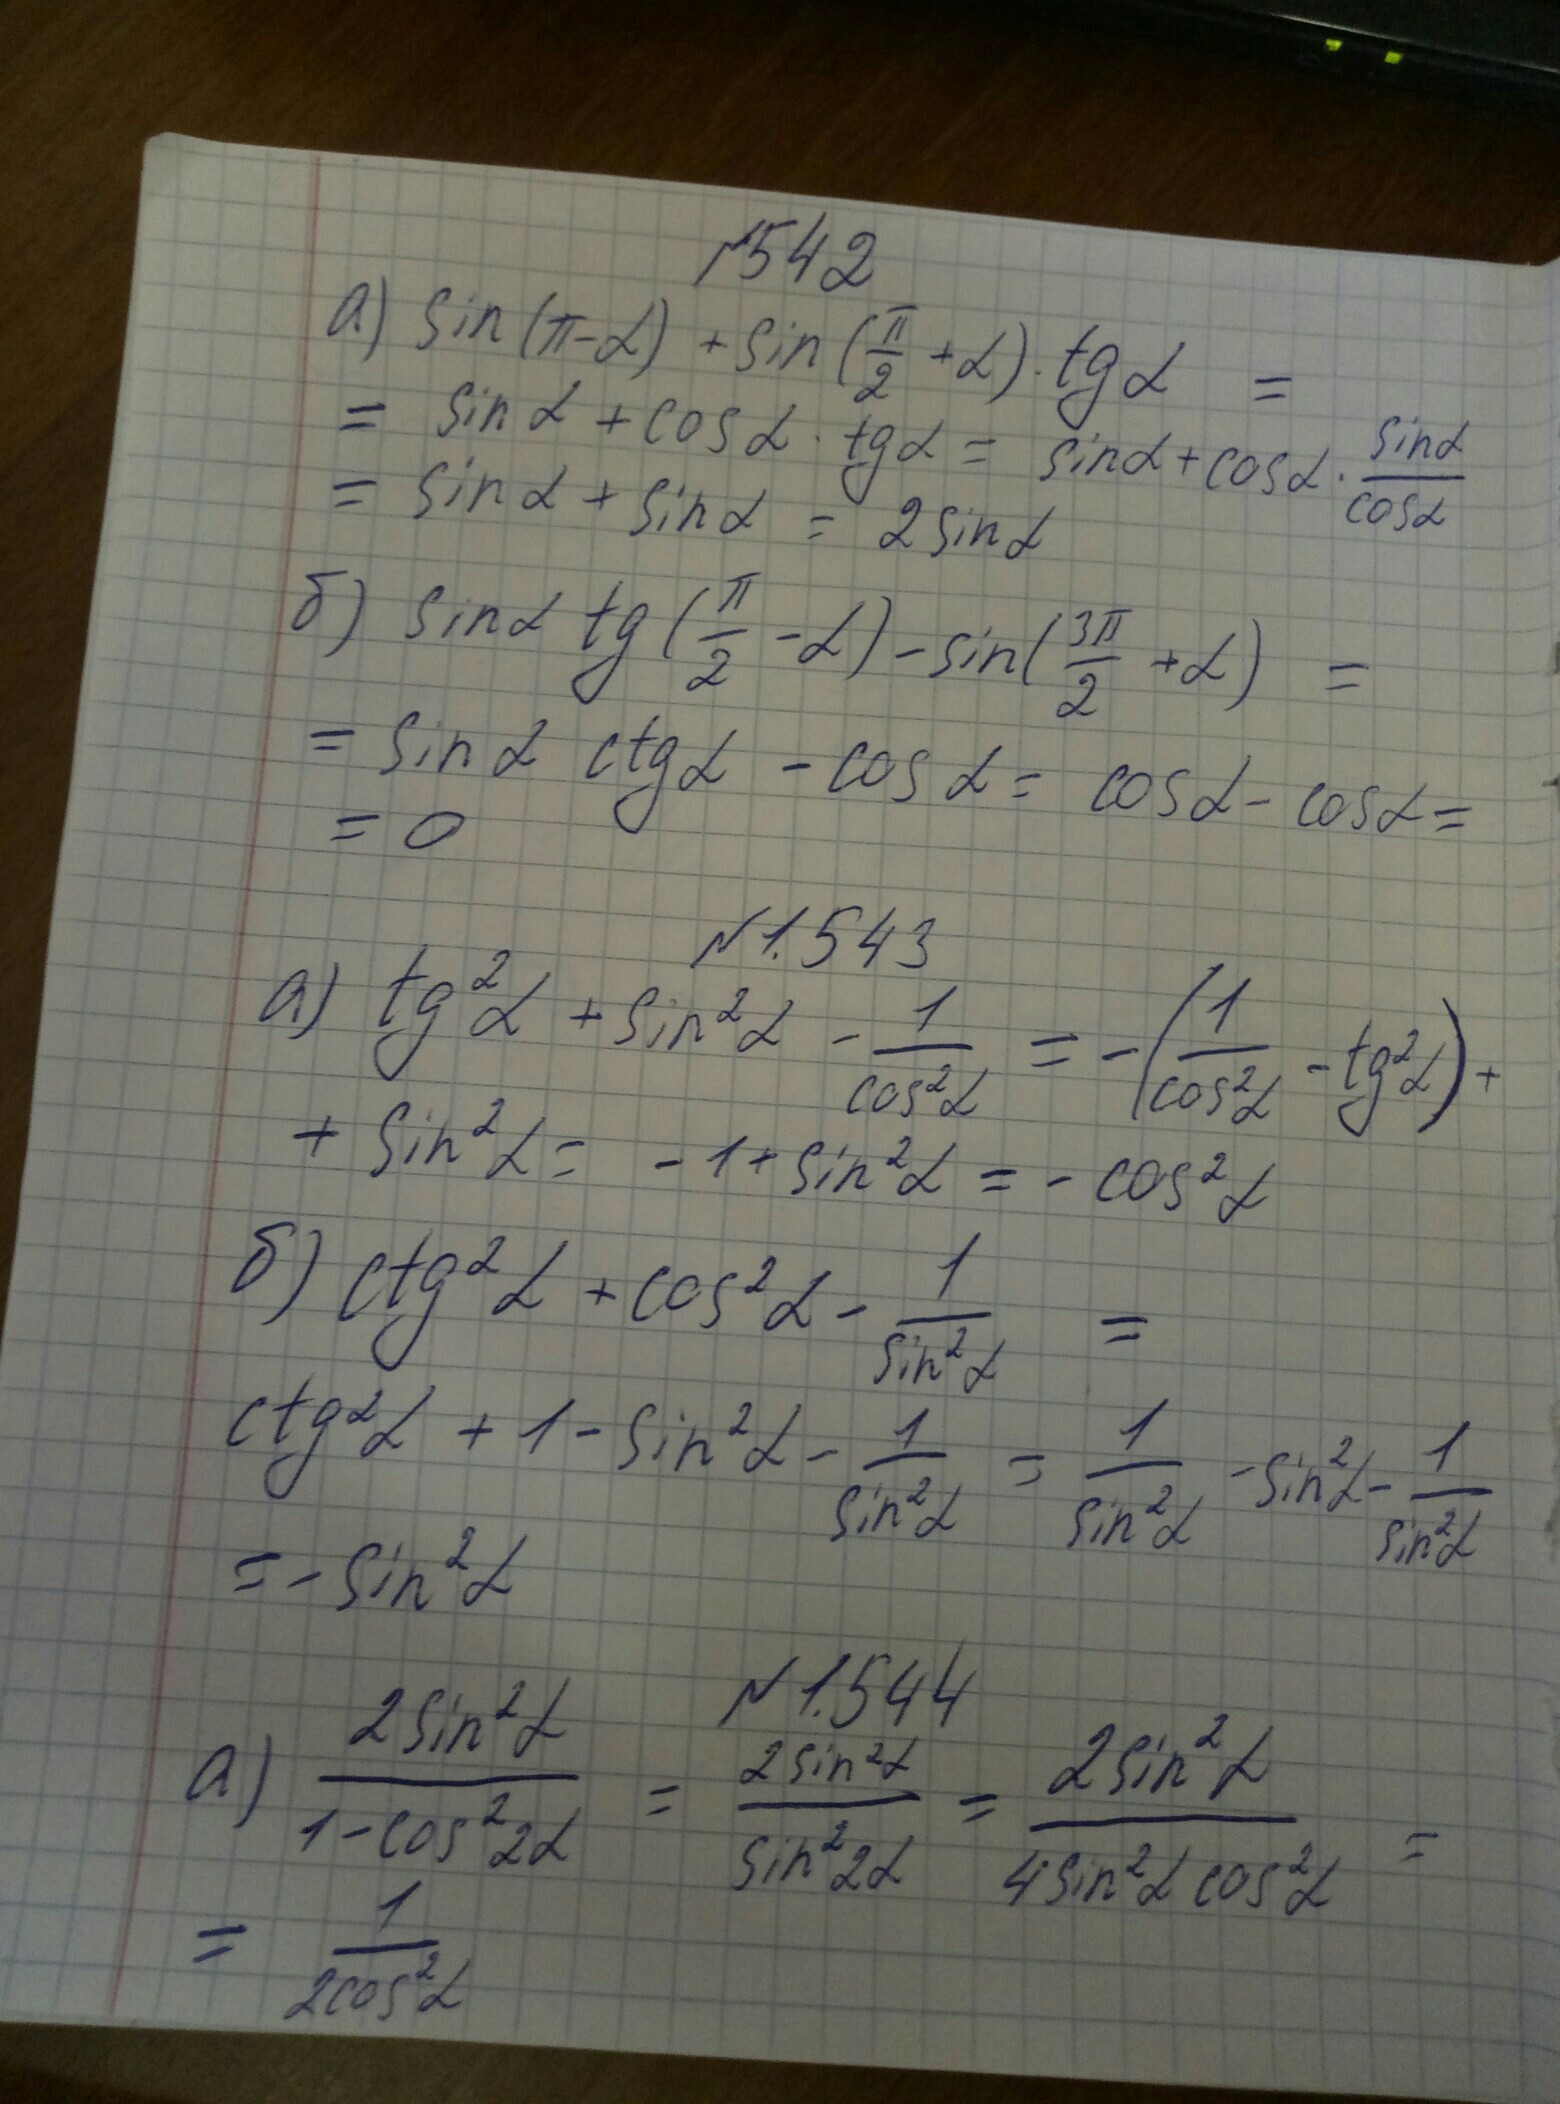 №542
а) sin(π-α) + sin(π/2 + α) · tgα =
= sinα + cosα · tgα = sinα + cosα · sinα/cosα
= sinα + sinα = 2sinα
б) sinα tg(π/2 - α) - sin(3π/2 + α) =
= sinα ctgα - cosα = cosα - cosα =
= 0
№1.543
а) tg²α + sin²α - 1/cos²α = -(1/cos²α - tg²α) +
+ sin²α = -1 + sin²α = -cos²α
б) ctg²α + cos²α - 1/sin²α =
ctg²α + 1 - sin²α - 1/sin²α = 1/sin²α - sin²α - 1/sin²α
= -sin²α
№1.544
а) 2sin²α/1-cos²2α = 2sin²α/sin²2α = 2sin²α/4sin²α cos²α =
= 1/2cos²α